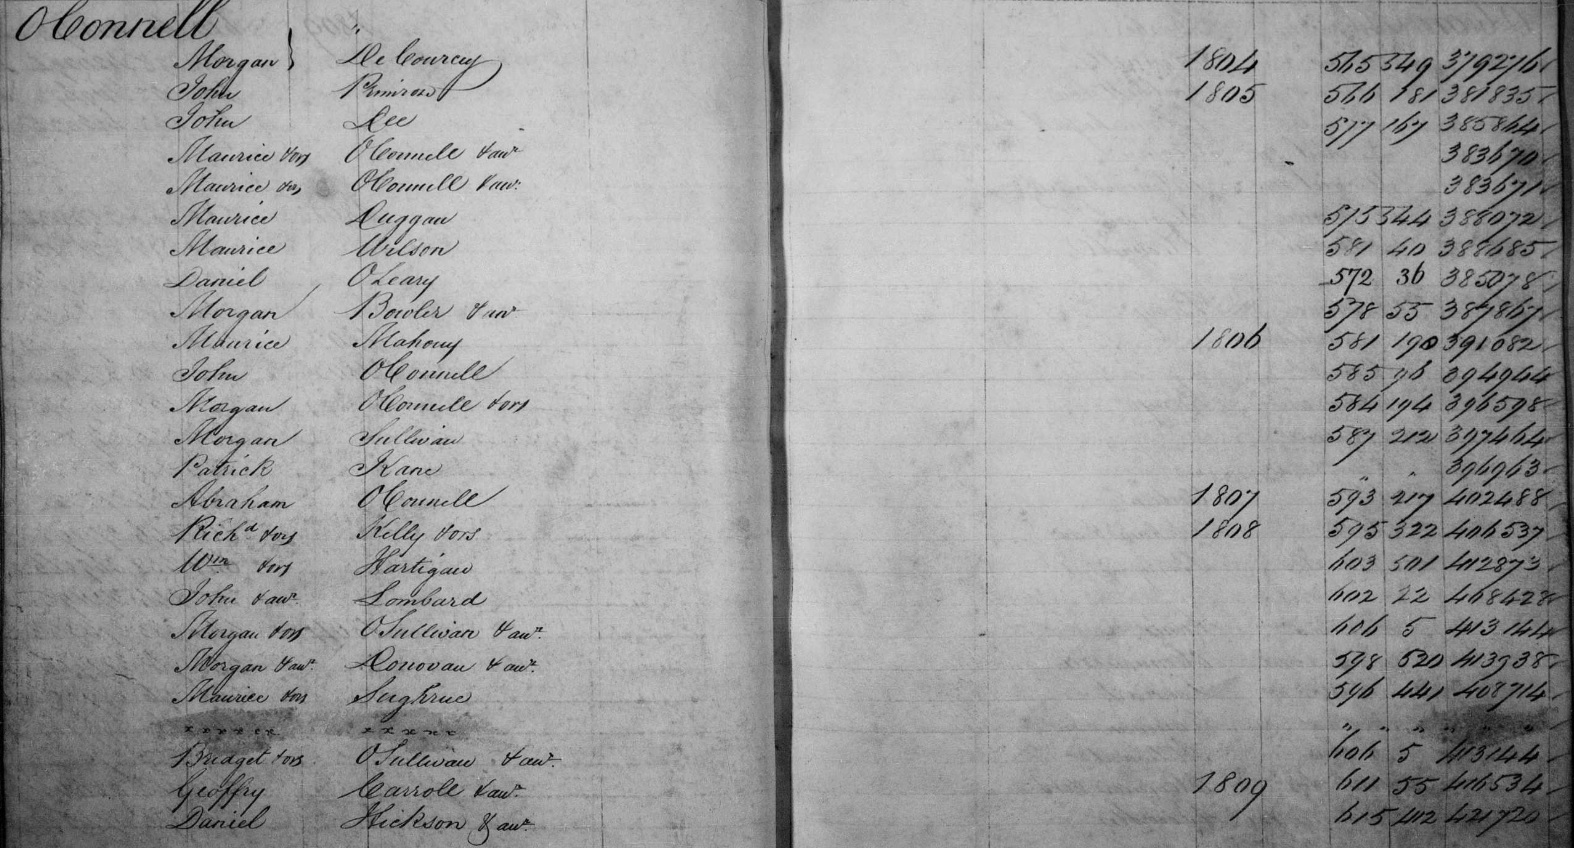 OConnell "
Morgan } De Courcy 1804 565 349 379276
John Primrose 1805 566 181 381835
John Lee 577 167 385864
Maurice & ors OConnell & anr 383670
Maurice & ors OConnell & anr 383671
Maurice Duggan 575 344 388072
Maurice Wilson 581 40 388685
Daniel OLeary 572 36 385078
Morgan Bowler & anr 578 55 387867
Maurice Mahony 1806 581 190 391082
John OConnell 585 96 394944
Morgan OConnell & ors 584 194 396598
Morgan Sullivan 587 212 397464
Patrick Kane " " 396963
Abraham OConnell 1807 593 217 402488
Richd & ors Kelly & ors 1808 595 322 406537
Wm & ors Hartigan 603 501 412873
John & anr Lombard 602 22 408428
Morgan & ors OSullivan & anr 606 5 413144
Morgan & anr Donovan & anr 598 520 413938
Maurice & ors Sughrue 596 441 408714
x x x x x x x x x x x " " " " " "
Bridget & ors OSullivan & anr 606 5 413144
Geoffry Carroll & anr 1809 611 55 416534
Daniel Hickson & anr 615 412 421720